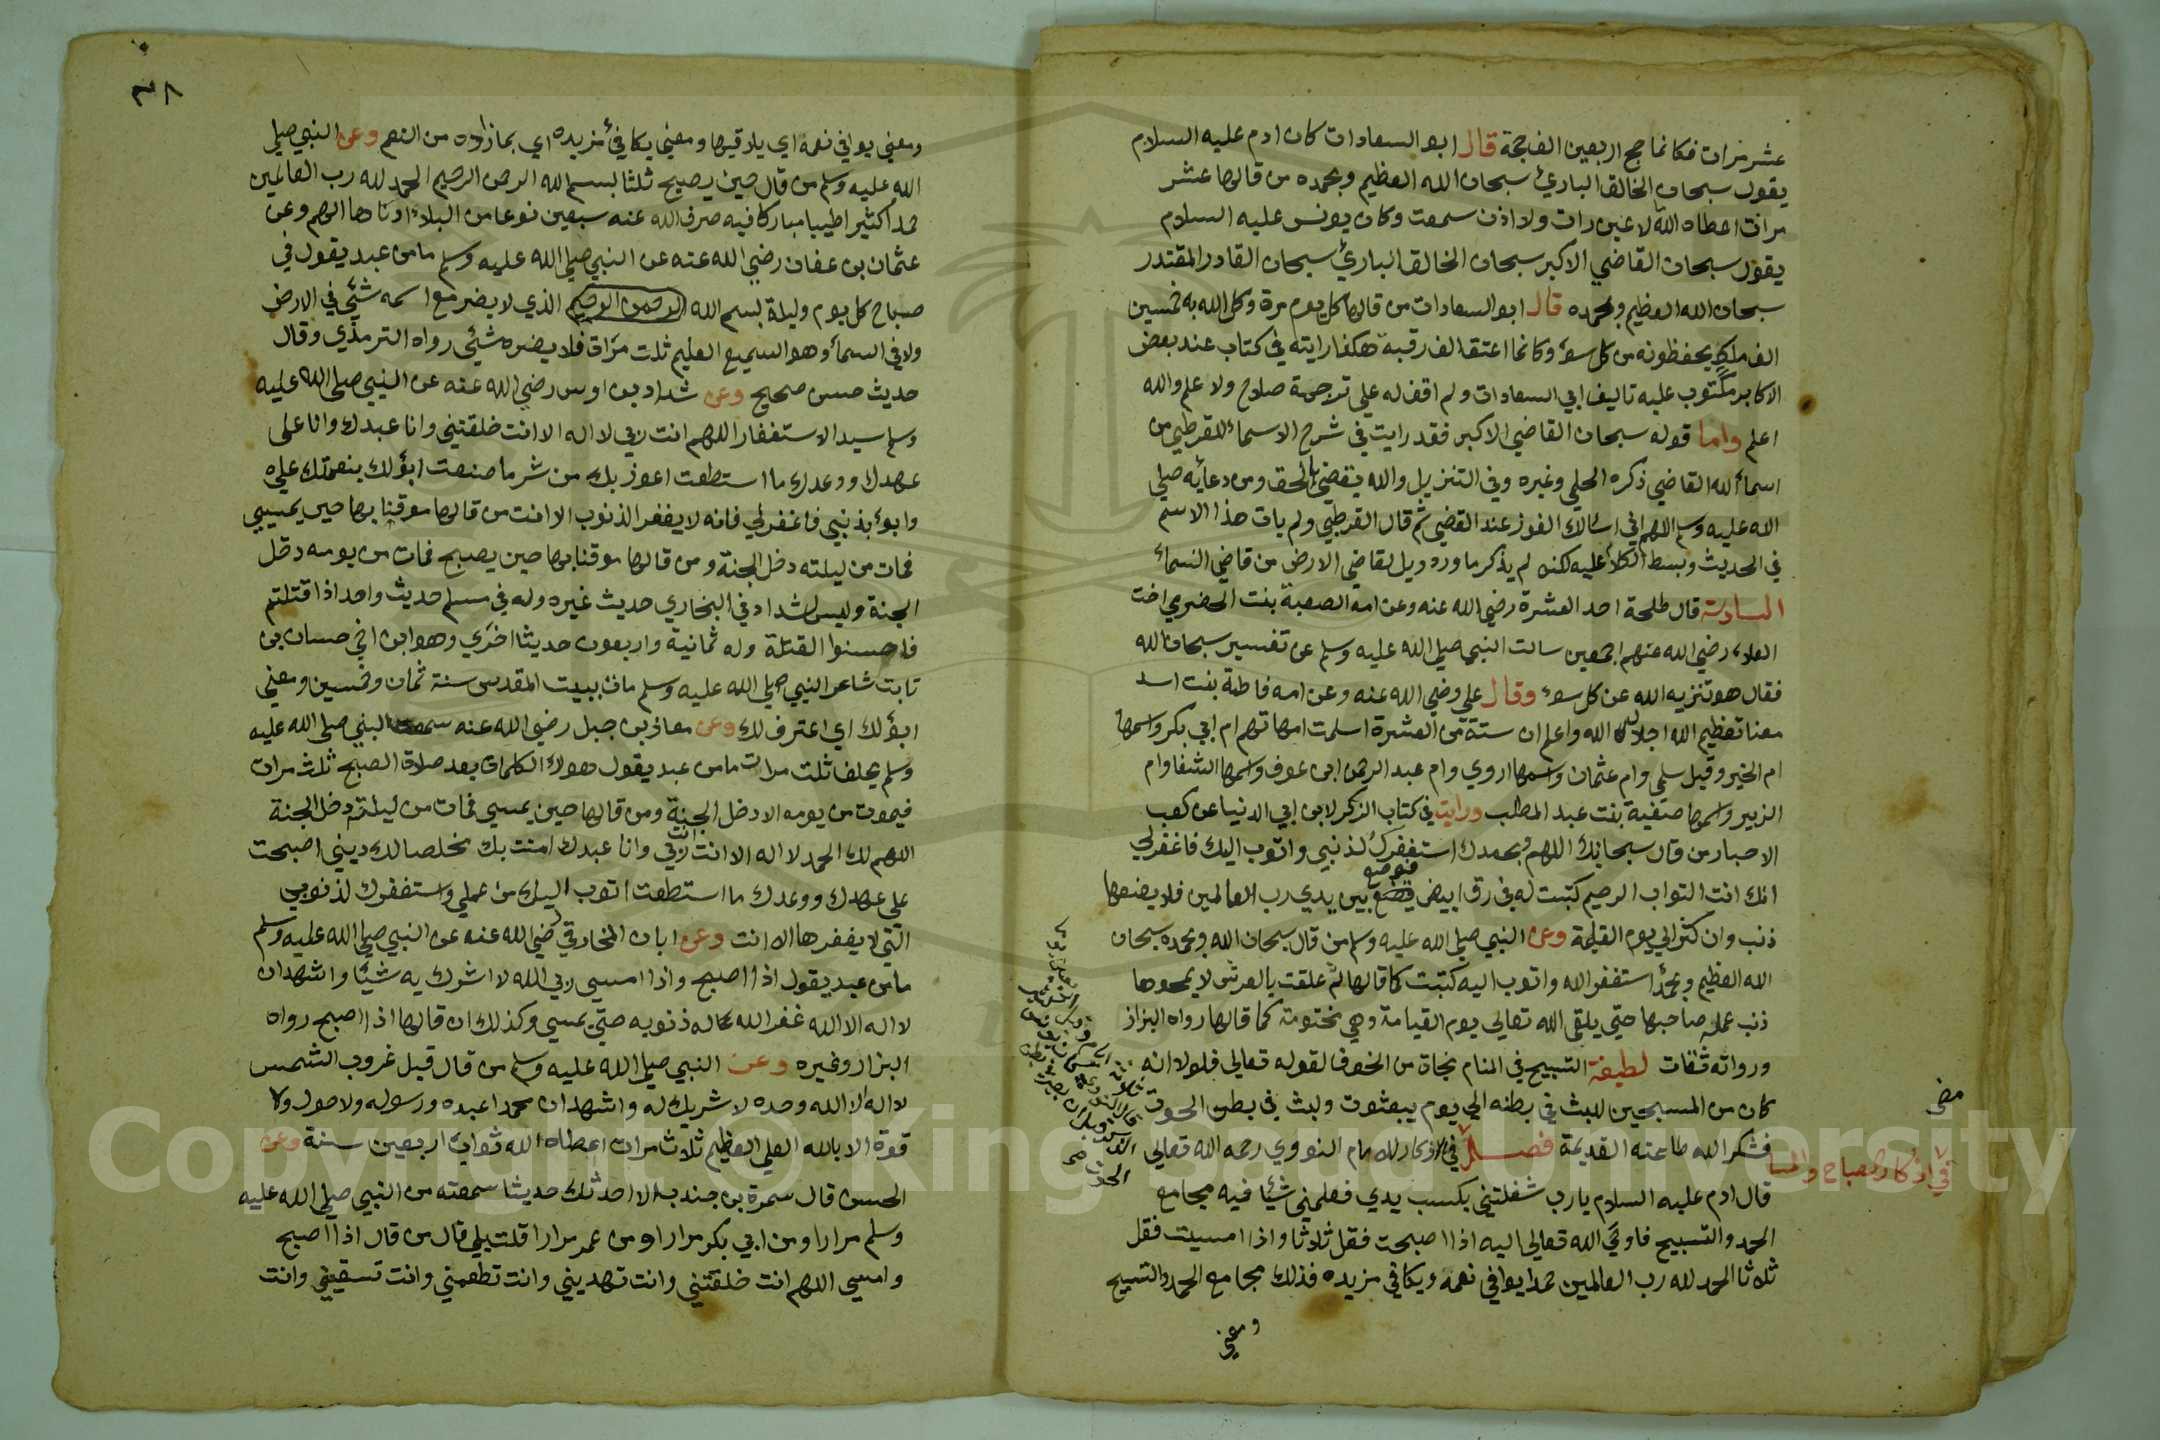 عشر مرات فكانما حج اربعين الف حجة قال ابو السعادات كان ادم عليه السلام
يقول سبحان الخالق البارئ سبحان الله العظيم وبحمده من قالها عشر
مرات اعطاه الله لا عين رات ولا اذن سمعت وكان يونس عليه السلام
يقول سبحان القاضي الاكبر سبحان الخالق البارئ سبحان القادر المقتدر
سبحان الله العظيم وبحمده قال ابو السعادات من قالها كل يوم مرة وكل الله به خمسين
الف ملك يحفظونه من كل سوء وكانما اعتق الف رقبة هكذا رايته في كتاب عند بعض
الاكابر مكتوب عليه تاليف ابي السعادات ولم اقف له على ترجمة صلاح ولا علم والله
اعلم واما قوله سبحان القاضي الاكبر فقد رايت في شرح الاسماء للقرطبي من
اسماء الله القاضي ذكره الحلي وغيره وفي التنزيل والله يقضي بالحق ومن دعائه صلي
الله عليه وسلم اللهم اني اسالك الفوز عند القضي ثم قال القرطبي ولم يات هذا الاسم
في الحديث وبسط الكلام عليه لكنه لم يذكر ما ورد ويل لقاضي الارض من قاضي السماء
السادسة قال طلحة احد العشرة رضي الله عنه وعن امه الصعبة بنت الحضري اخت
العلاء رضي الله عنهم اجمعين سالت النبي صلي الله عليه وسلم عن تفسير سبحان الله
فقال هو تنزيه الله عن كل سوء وقال علي رضي الله عنه وعن امه فاطمة بنت اسد
معنا تعظيم الله اجلال الله واعلم ان ستة من العشرة اسلمت امهاتهم ام ابي بكر واسمها
ام الخير وقيل سلمي وام عثمان واسمها اروي وام عبد الرحمن ابن عوف واسمها الشفا وام
الزبير واسمها صفية بنت عبد المطلب ورايت في كتاب الذكر لابن ابي الدنيا عن كعب
الاحبار من قال سبحانك اللهم وبحمدك استغفرك لذنبي واتوب اليك فاغفر لي
انك انت التواب الرحيم كتبت له في رق ابيض فتوضع بين يدي رب العالمين فلا يضعها
ذنب وان كثر الي يوم القيمة وعن النبي صلي الله عليه وسلم من قال سبحان الله وبحمده سبحان
الله العظيم وبحمده استغفر الله واتوب اليه كتبت كما قالها ثم علقت بالعرش لا يمحوها
ذنب عمله صاحبها حتي يلقى الله تعالي يوم القيامة وهي مختومة كما قالها رواه البزاز
ورواته ثقات لطيفة التسبيح في المنام نجاة من الخوف لقوله تعالي فلولا انه
كان من المسبحين للبث في بطنه الي يوم يبعثون ولبث في بطن الحوت
فشكر الله طاعته القديمة فصل في الاذكار للامام النووي رحمه الله تعالي
في اذكار الصباح والمسا
قال ادم عليه السلام يا رب شغلتني بكسب يدي فعلمني شيئا فيه مجامع
الحمد والتسبيح فاوحي الله تعالي اليه اذا اصبحت فقل ثلاثا واذا امسيت فقل
ثلاثا الحمد لله رب العالمين حمدا يوافي نعمه ويكافي مزيده فذلك مجامع الحمد والتسبيح
ومعني
٣٨
ومعني يوافي نعمه اي يلاقيها ومعني يكافئ مزيده اي بما زاده من النعم وعن النبي صلي
الله عليه وسلم من قال حين يصبح ثلثا بسم الله الرحمن الرحيم الحمد لله رب العالمين
حمدا كثيرا طيبا مباركا فيه صرف الله عنه سبعين نوعا من البلاء ادناها الهم وعن
عثمان بن عفان رضي الله عنه عن النبي صلي الله عليه وسلم ما من عبد يقول في
صباح كل يوم وليلة بسم الله الرحمن الرحيم الذي لا يضر مع اسمه شئ في الارض
ولا في السماء وهو السميع العليم ثلث مرات فلا يضره شئ رواه الترمذي وقال
حديث حسن صحيح وعن شداد بن اوس رضي الله عنه عن النبي صلى الله عليه
وسلم سيد الاستغفار اللهم انت ربي لا اله الا انت خلقتني وانا عبدك وانا على
عهدك ووعدك ما استطعت اعوذ بك من شر ما صنعت ابؤ لك بنعمتك علي
وابوء بذنبي فاغفر لي فانه لا يغفر الذنوب الا انت من قالها موقنا بها حين يمسي
فمات من ليلته دخل الجنة ومن قالها موقنا بها حين يصبح فمات من يومه دخل
الجنة وليس لشداد في البخاري حديث غيره وله في مسلم حديث واحد اذا قتلتم
فاحسنوا القتلة وله ثمانية واربعون حديثا اخري وهو ابن اخي حسان بن
ثابت شاعر النبي صلي الله عليه وسلم مات ببيت المقدس سنة ثمان وخمسين ومعني
ابؤ لك اي اعترف لك وعن معاذ بن جبل رضي الله عنه سمعت النبي صلي الله عليه
وسلم يحلف ثلث مرات ما من عبد يقول هولاء الكلمات بعد صلاة الصبح ثلث مرات
فيموت من يومه الا دخل الجنة ومن قالها حين يمسي فمات من ليلته دخل الجنة
اللهم لك الحمد لا اله الا انت انت ربي وانا عبدك امنت بك مخلصا لك ديني اصبحت
علي عهدك ووعدك ما استطعت اتوب اليك من عملي واستغفرك لذنوبي
التي لا يغفرها الا انت وعن ابان المحاربي رضي الله عنه عن النبي صلي الله عليه وسلم
ما من عبد يقول اذا اصبح واذا امسي ربي الله لا اشرك به شيئا واشهد ان
لا اله الا الله غفر الله له ذنوبه حتي يمسي وكذلك ان قالها اذا اصبح رواه
البزار وغيره وعن النبي صلي الله عليه وسلم من قال قبل غروب الشمس
لا اله الا الله وحده لا شريك له واشهد ان محمدا عبده ورسوله ولا حول ولا
قوة الا بالله العلي العظيم ثلاث مرات اعطاه الله ثواب اربعين سنة وعن
الحسن قال سمرة بن جندب الا احدثك حديثا سمعته من النبي صلي الله عليه
وسلم مرارا ومن ابي بكر مرارا ومن عمر مرارا قلت بلي قال من قال اذا اصبح
وامسي اللهم انت خلقتني وانت تهديني وانت تطعمني وانت تسقيني وانت
Copyright © King Saud University